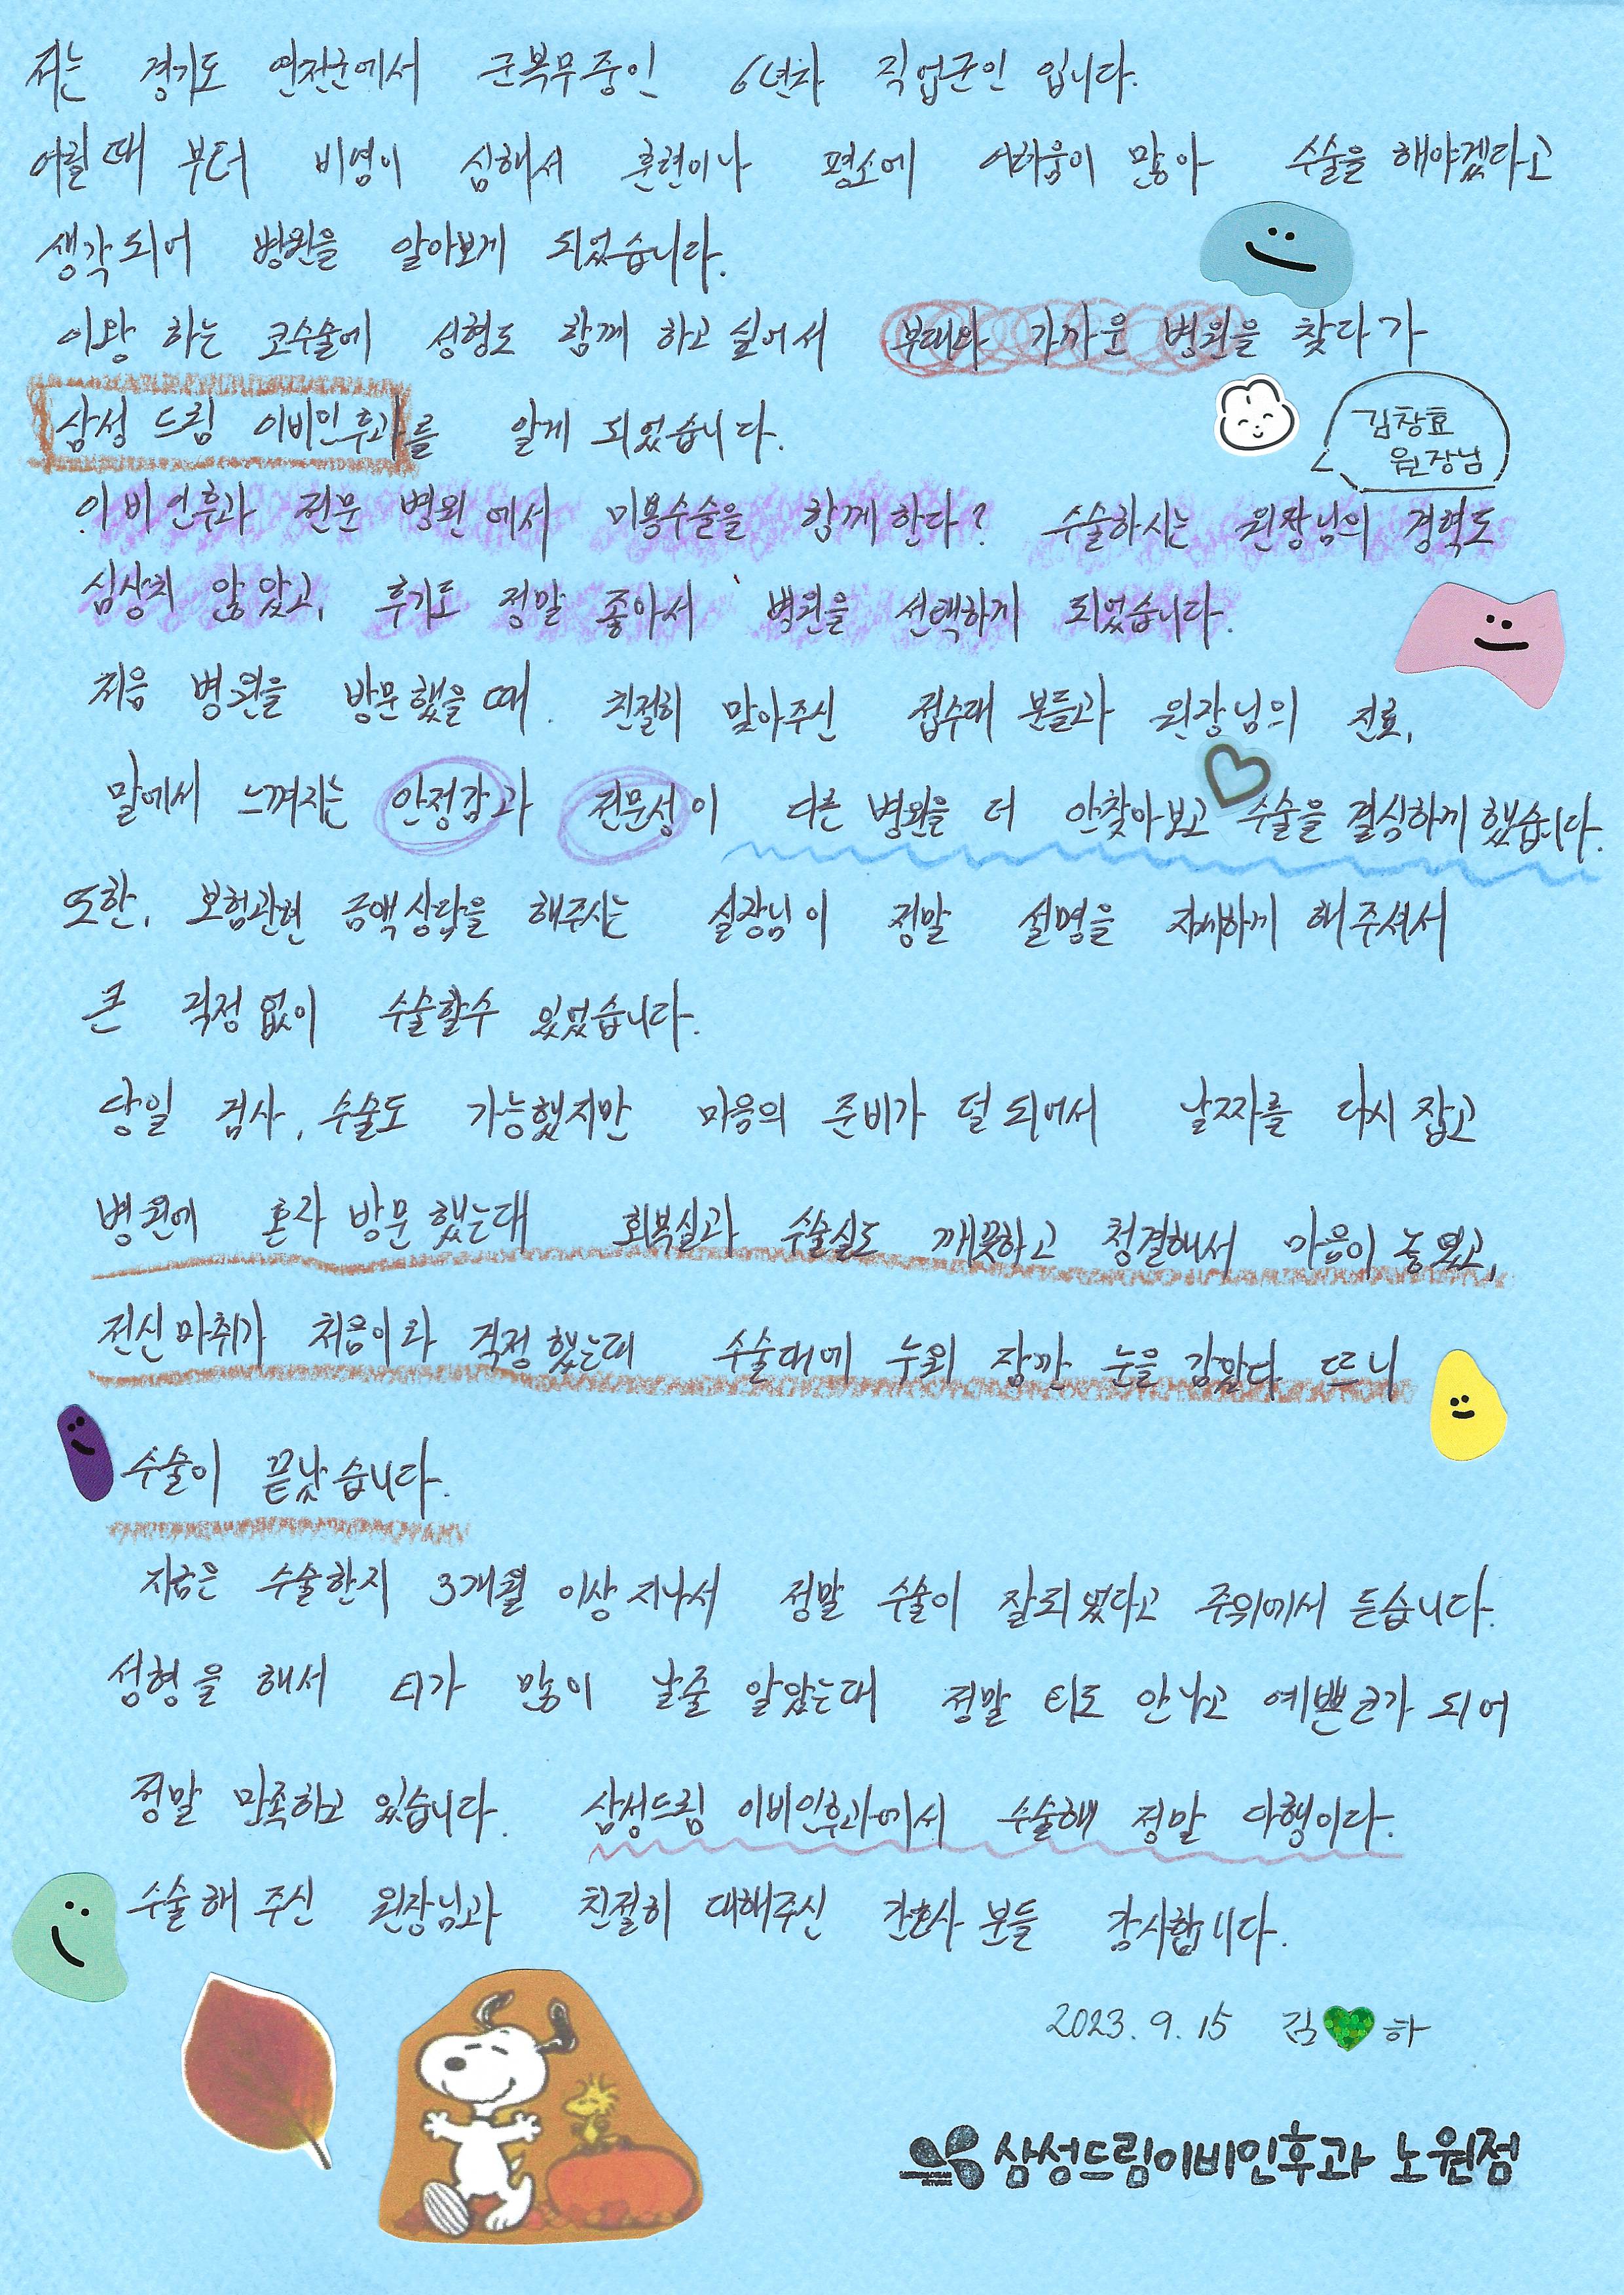 저는 경기도 연천군에서 군복무중인 6년차 직업군인 입니다.
어릴때 부터 비염이 심해서 훈련이나 평소에 어려움이 많아 수술을 해야겠다고
생각되어 병원을 알아보게 되었습니다.
이왕 하는 코수술에 성형도 함께 하고싶어서 부대와 가까운 병원을 찾다가
삼성 드림 이비인후과를 알게 되었습니다.
김창효
원장님
이비인후과 전문 병원에서 미용수술을 함께한다? 수술하시는 원장님의 경력도
심상치 않았고, 후기도 정말 좋아서 병원을 선택하게 되었습니다.
처음 병원을 방문했을 때. 친절히 맞아주신 접수대 분들과 원장님의 진료,
말에서 느껴지는 안정감과 전문성이 다른 병원을 더 안찾아보고 수술을 결심하게 했습니다.
또한, 보험관련 금액상담을 해주시는 실장님이 정말 설명을 자세하게 해주셔서
큰 걱정없이 수술할수 있었습니다.
당일 검사, 수술도 가능했지만 마음의 준비가 덜 되어서 날짜를 다시 잡고
병원에 혼자 방문했는대 회복실과 수술실도 깨끗하고 청결해서 마음이 놓였고,
전신마취가 처음이라 걱정했는데 수술대에 누워 잠깐 눈을 감았다 뜨니
수술이 끝났습니다.
지금은 수술한지 3개월 이상 지나서 정말 수술이 잘되었다고 주위에서 듣습니다.
성형을 해서 티가 많이 날줄 알았는대 정말 티도 안나고 예쁜코가 되어
정말 만족하고 있습니다. 삼성드림 이비인후과에서 수술해 정말 다행이다.
수술해 주신 원장님과 친절히 대해주신 간호사 분들 감사합니다.
2023. 9. 15 김 하
삼성드림이비인후과 노원점